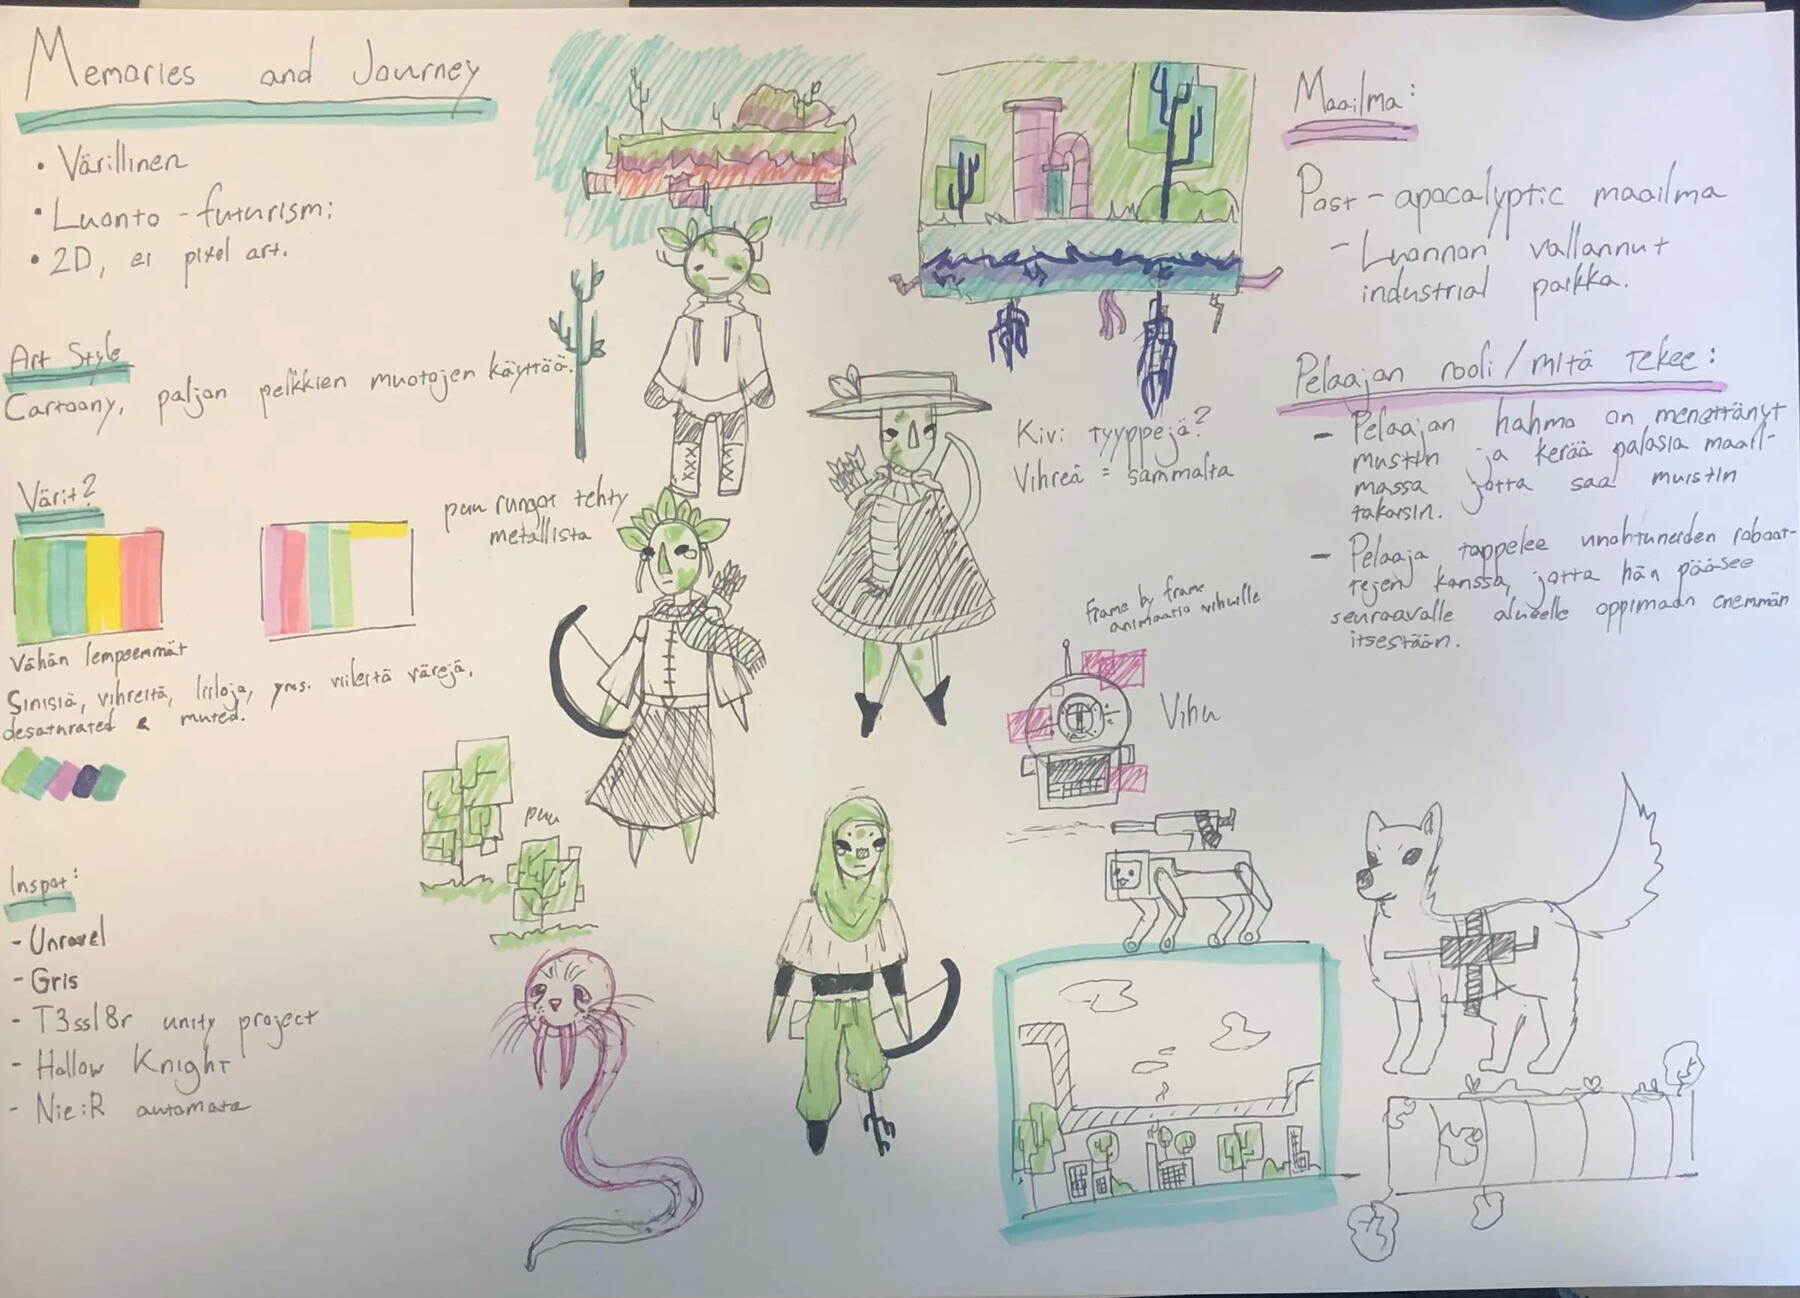 Memories and Journey
• Värillinen
• Luonto-futurismi
• 2D, ei pixel art.
Art Style
Cartoony, paljon pelkkien muotojen käyttöä.
Värit?
Vähän lempeemmät
Sinisiä, vihreitä, liiloja, yms. viileitä värejä,
desaturated & muted.
Inspot:
- Unravel
- Gris
- T3ssl8r unity project
- Hollow Knight
- Nie:R automata
puu rungot tehty
metallista
puu
Kivi tyyppejä?
Vihreä = sammalta
Frame by frame
animaatio vihuille
Vihu
Maailma:
Post-apocalyptic maailma
- Luonnon vallannut
industrial paikka.
Pelaajan rooli/mitä tekee:
- Pelaajan hahmo on menettänyt
mustin ja kerää palasia maail-
massa jotta saa muistin
takaisin.
- Pelaaja tappelee unohtuneiden roboot-
tejen kanssa, jotta hän pääsee
seuraavalle alueelle oppimaan enemmän
itsestään.